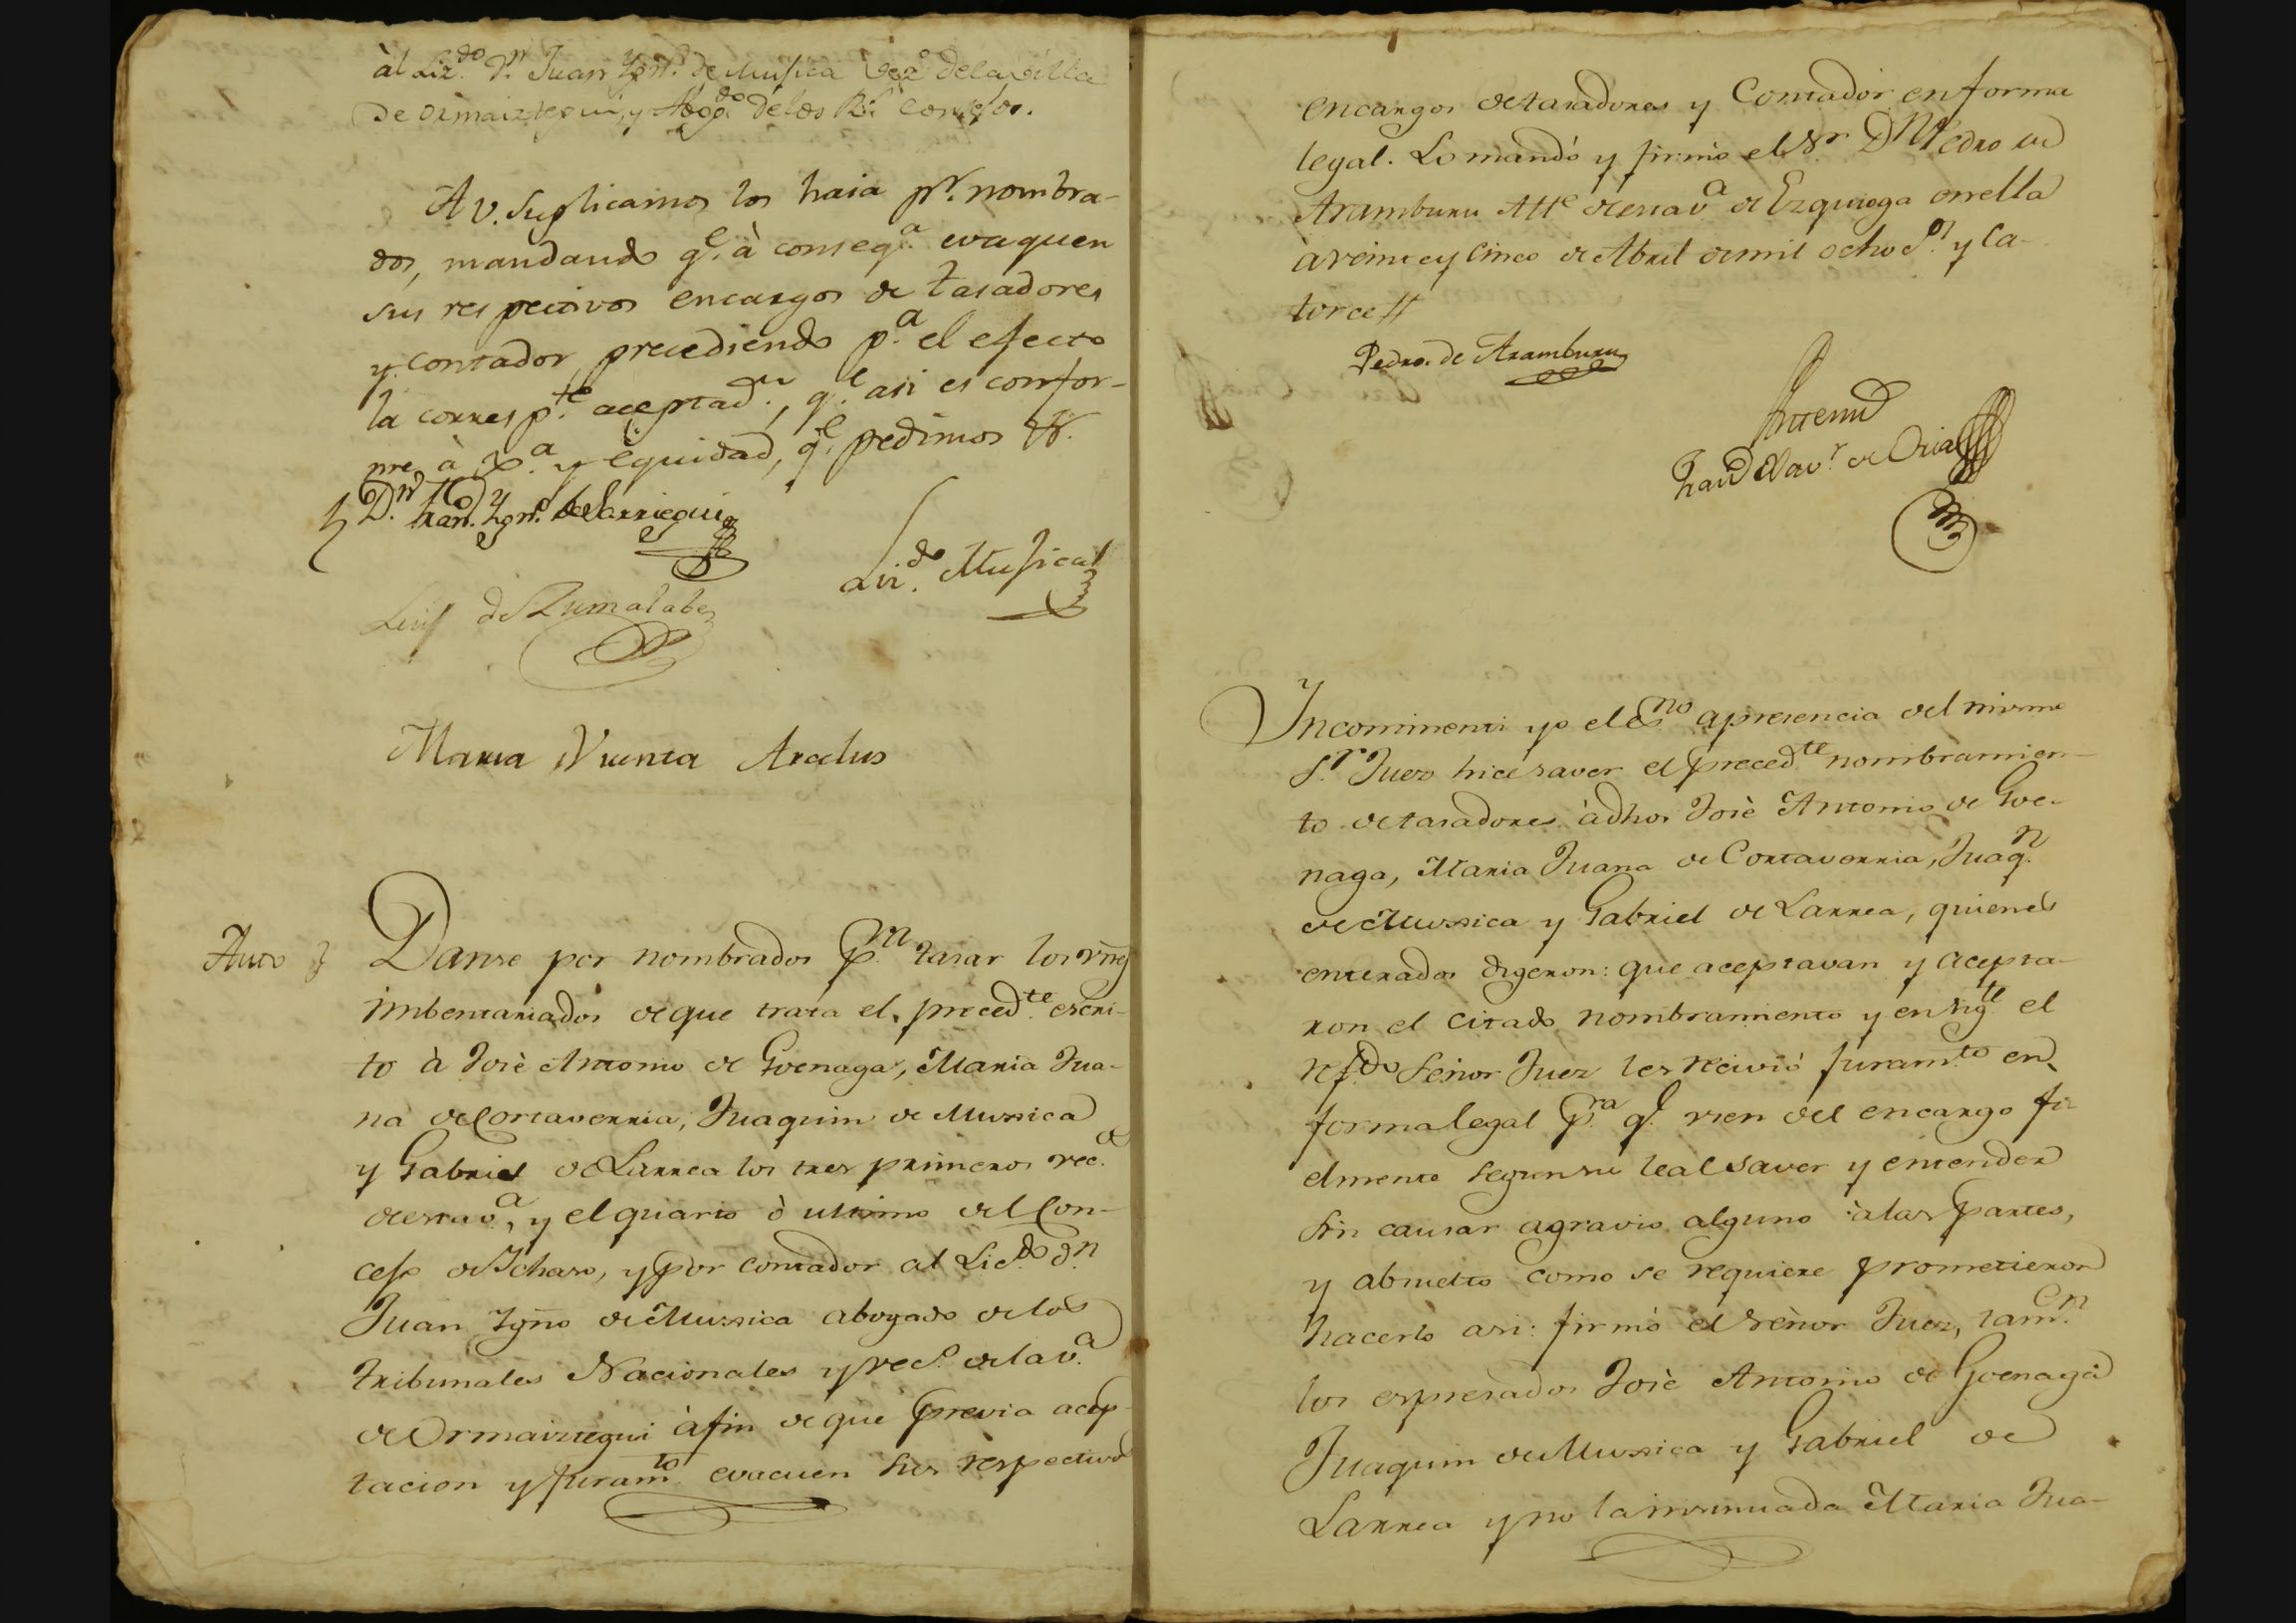 àl Liz.do D.n Juan Ygn.o de Musica vez.o dela villa
De Ormaiztegui, y Abog.do delos R.s Consejos.
A V. Suplicamos los haia p.r nombra-
dos, mandando q.e à conseq.a evaquen
sus respectivos encargos de tasadores
y contador precediendo p.a el efecto
la corresp.te aceptad.n, q.e asi es confor-
me à y equidad, q.e pedimos &.
D.n Fran.co Ygn.o de Larriegui
Liz.do Musica
Luis de Zumalabe
Maria Vicenta Aracelus
Auto
Danse por nombrados p.ra tasar los vnes
imbentariados de que trata el preced.te escri-
to à Josè Antonio de Goenaga, Maria Jua-
na de Cortaverria, Juaquin de Mussica
y Gabriel de Larrea los tres primeros vec.os
de esta v.a, y el quarto ò ultimo del Con-
cejo de Ichaso, y por contador al Lic.do d.n
Juan Ygño de Mussica abogado de los
tribunales Nacionales y vec.o de la v.a
de Ormaiztegui àfin de que previa acep-
tacion y juram.to evacuen sus respectivos
encargos de tasadores y Contador en forma
legal. Lo mandó y firmò el S.r D.n Pedro de
Aramburu Alle de esta v.a de Ezquioga en ella
à veinte y cinco de Abril de mil ocho c.s y ca-
torce //
Pedro de Aramburu
Antemi
Fran.co Xav.r de Oria
Incontinenti yo el es.no apresencia del mismo
S.r Juez hice saver el preced.te nombramien-
to de tasadores à dhos Josè Antonio de Goe-
naga, Maria Juana de Cortaverria, Juaq.n
de Mussica y Gabriel de Larrea, quienes
enterados digeron: que aceptavan y acepta-
ron el citado nombramiento y en sig.te el
refdo Señor Juez les recivió juram.to en
forma legal p.ra q.e vsen del encargo fi-
elmente segun su leal saver y entender
sin causar agravio alguno à las partes,
y absuelto como se requiere prometieron
hacerlo asi: firmò el señor Juez, tam.n
los espresados Josè Antonio de Goenaga
Juaquin de Mussica y Gabriel de
Larrea y no la insinuada Maria Jua-